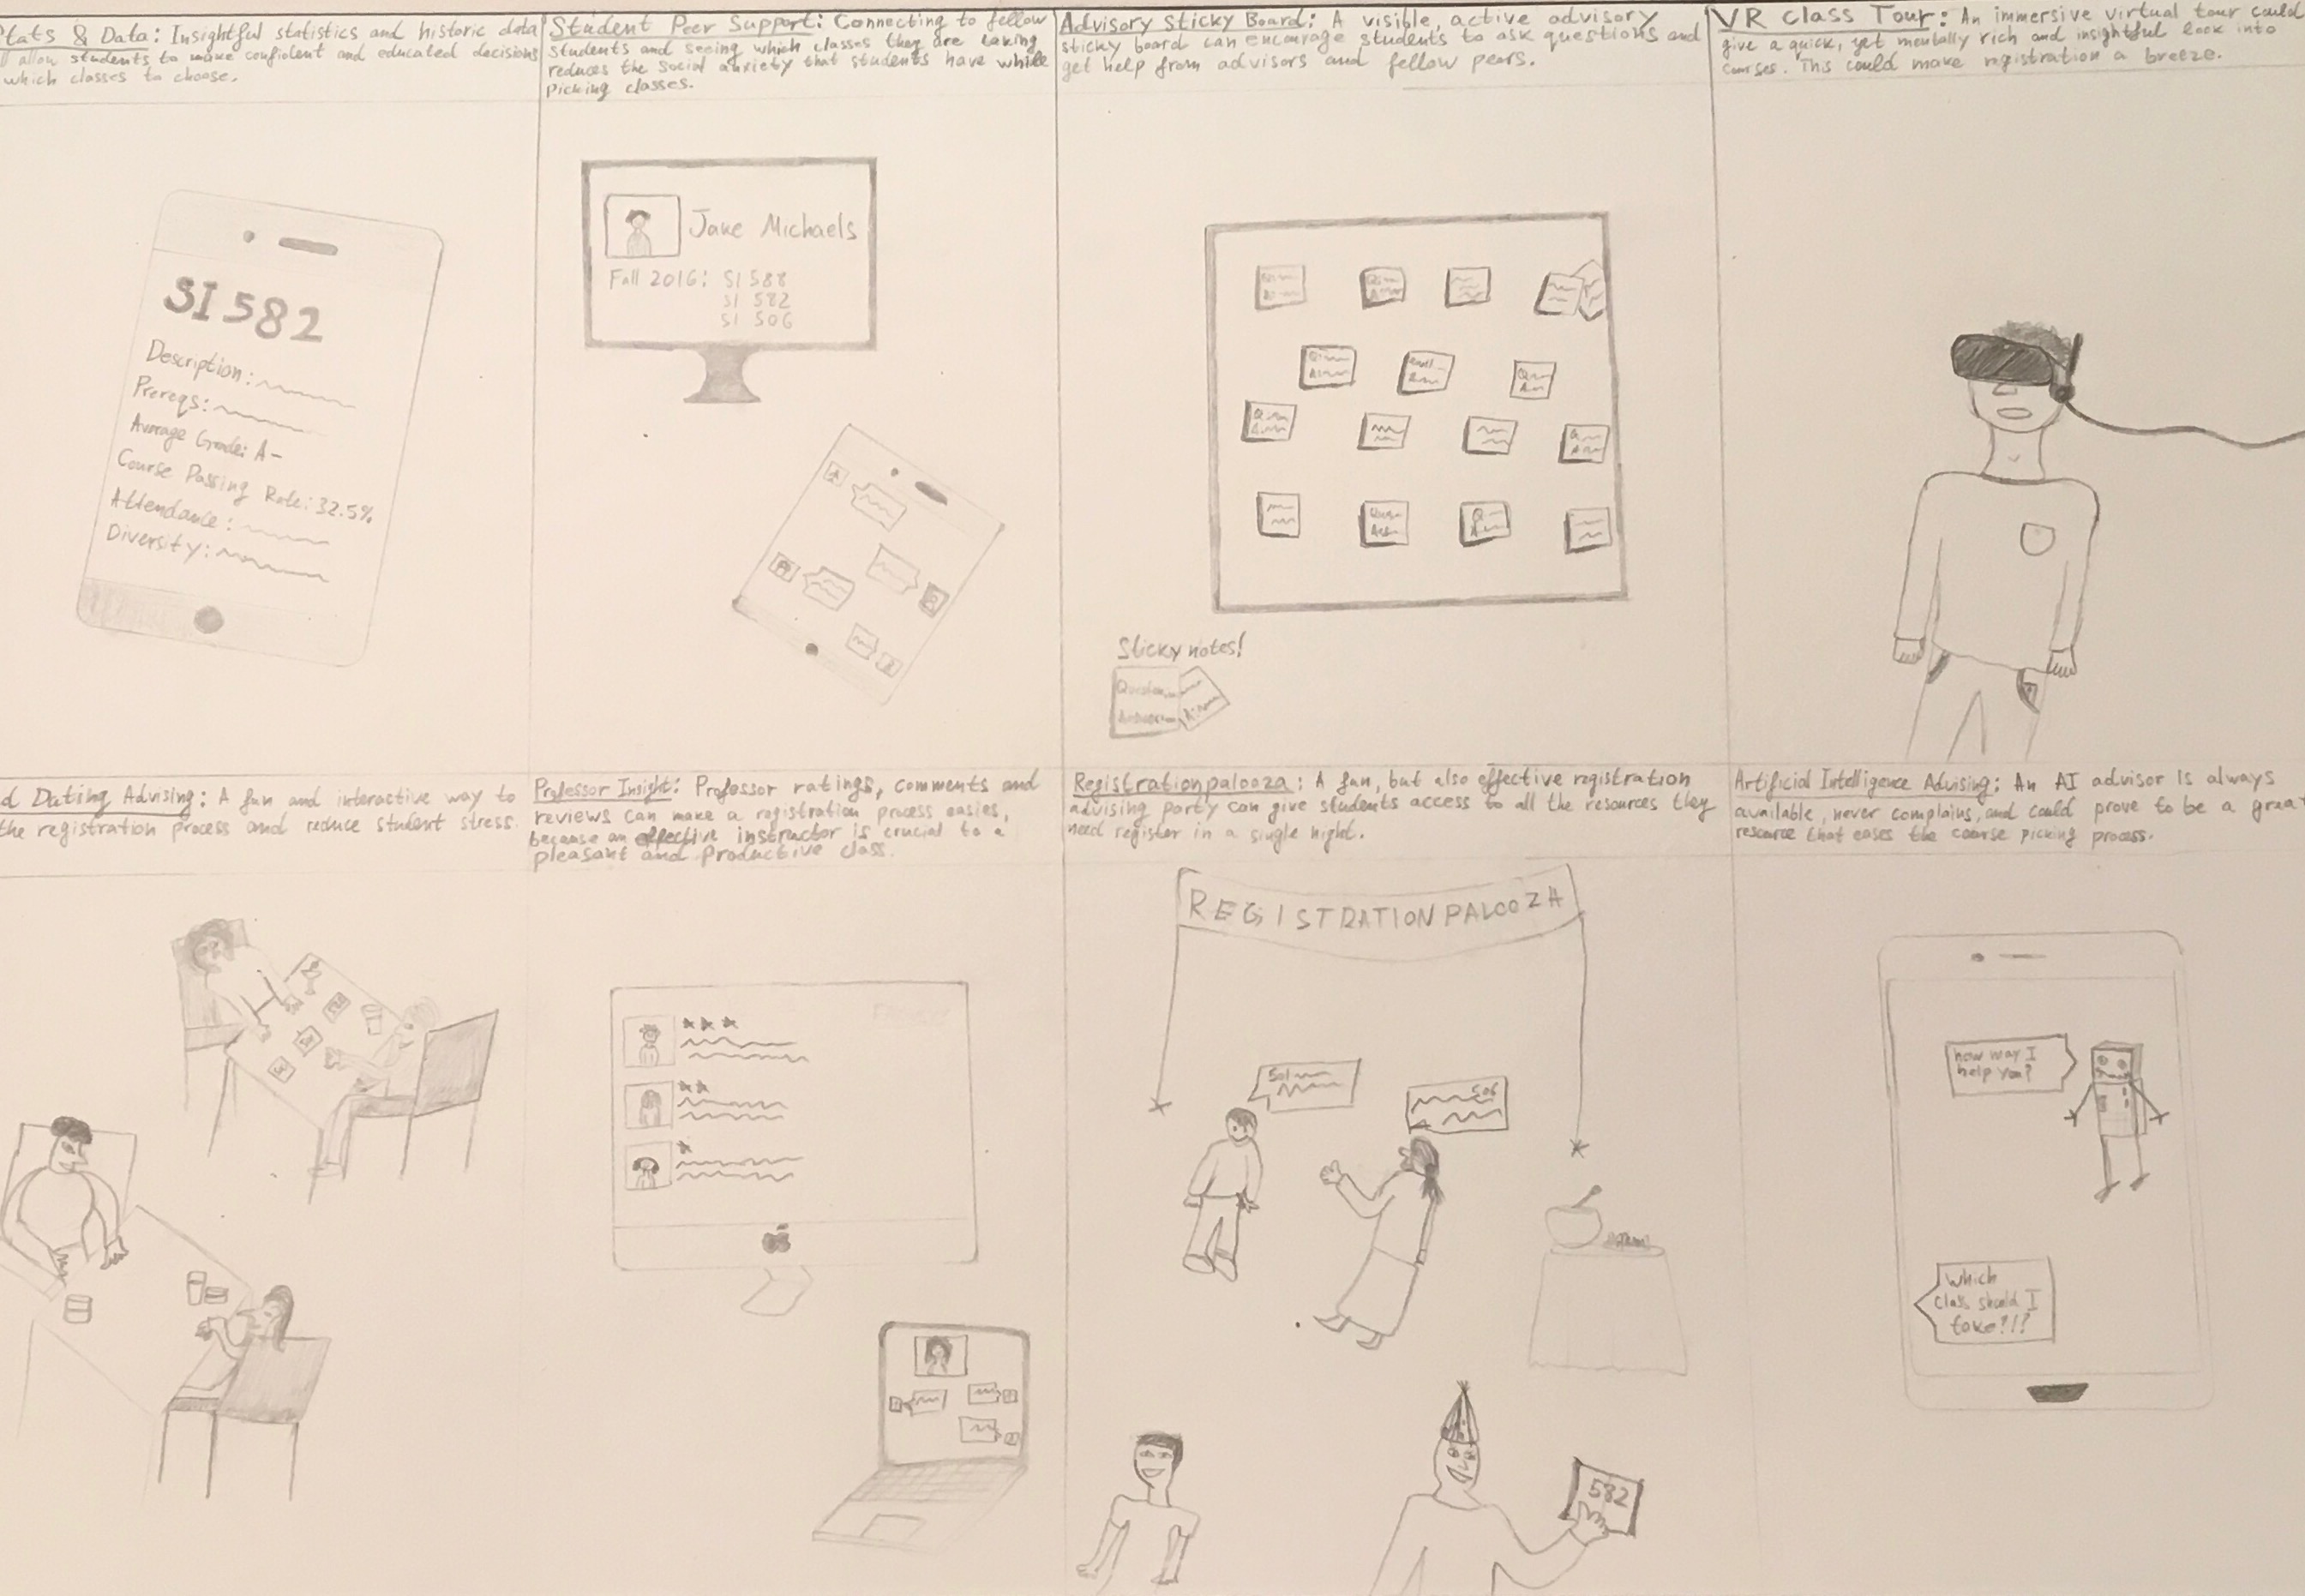 tats & Data: Insightful statistics and historic data
ll allow students to make confident and educated decisions
which classes to choose.
SI 582
Description:
Prereqs:
Average Grade: A-
Course Passing Rate: 32.5%
Attendance:
Diversity:
Student Peer Support: Connecting to fellow
students and seeing which classes they are taking
reduces the social anxiety that students have while
Picking classes.
Jake Michaels
Fall 2016: SI 588
SI 582
SI 506
Advisory Sticky Board: A visible, active advisory
sticky board can encourage students to ask questions and
get help from advisors and fellow peers.
Sticky notes!
VR Class Tour: An immersive virtual tour could
give a quick, yet mentally rich and insightful look into
courses. This could make registration a breeze.
d Dating Advising: A fun and interactive way to
the registration process and reduce student stress.
Professor Insight: Professor ratings, comments and
reviews can make a registration process easies,
because an effective instructor is crucial to a
pleasant and productive class.
Registrationpalooza: A fun, but also effective registration
advising party can give students access to all the resources they
need register in a single night.
REGISTRATIONPALOOZA
501
506
582
Artificial Intelligence Advising: An AI advisor is always
available, never complains, and could prove to be a grea
resource that eases the course picking process.
how may I
help you?
Which
class should I
take?!!?